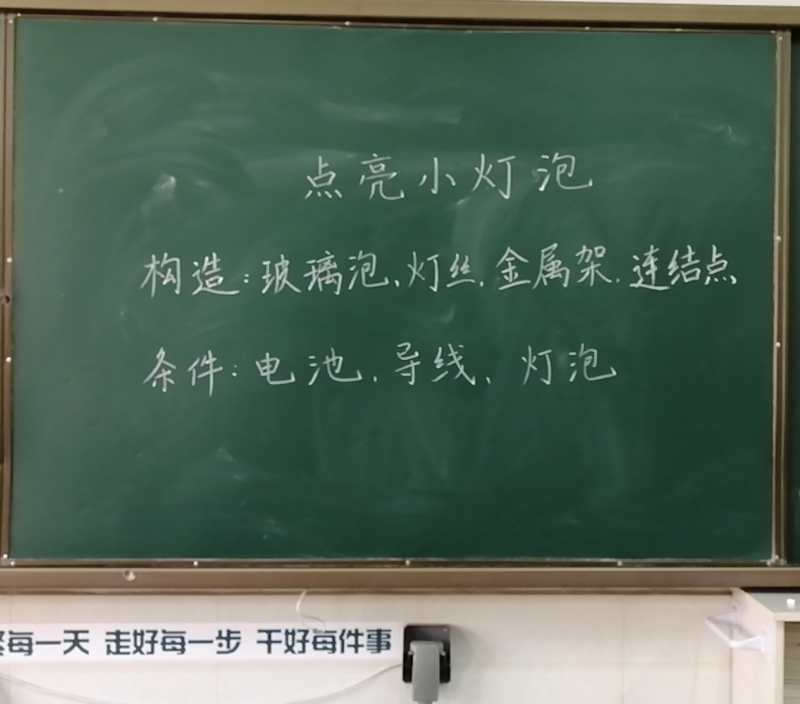 点亮小灯泡
构造:玻璃泡、灯丝、金属架、连结点
条件:电池、导线、灯泡
每一天 走好每一步 干好每件事